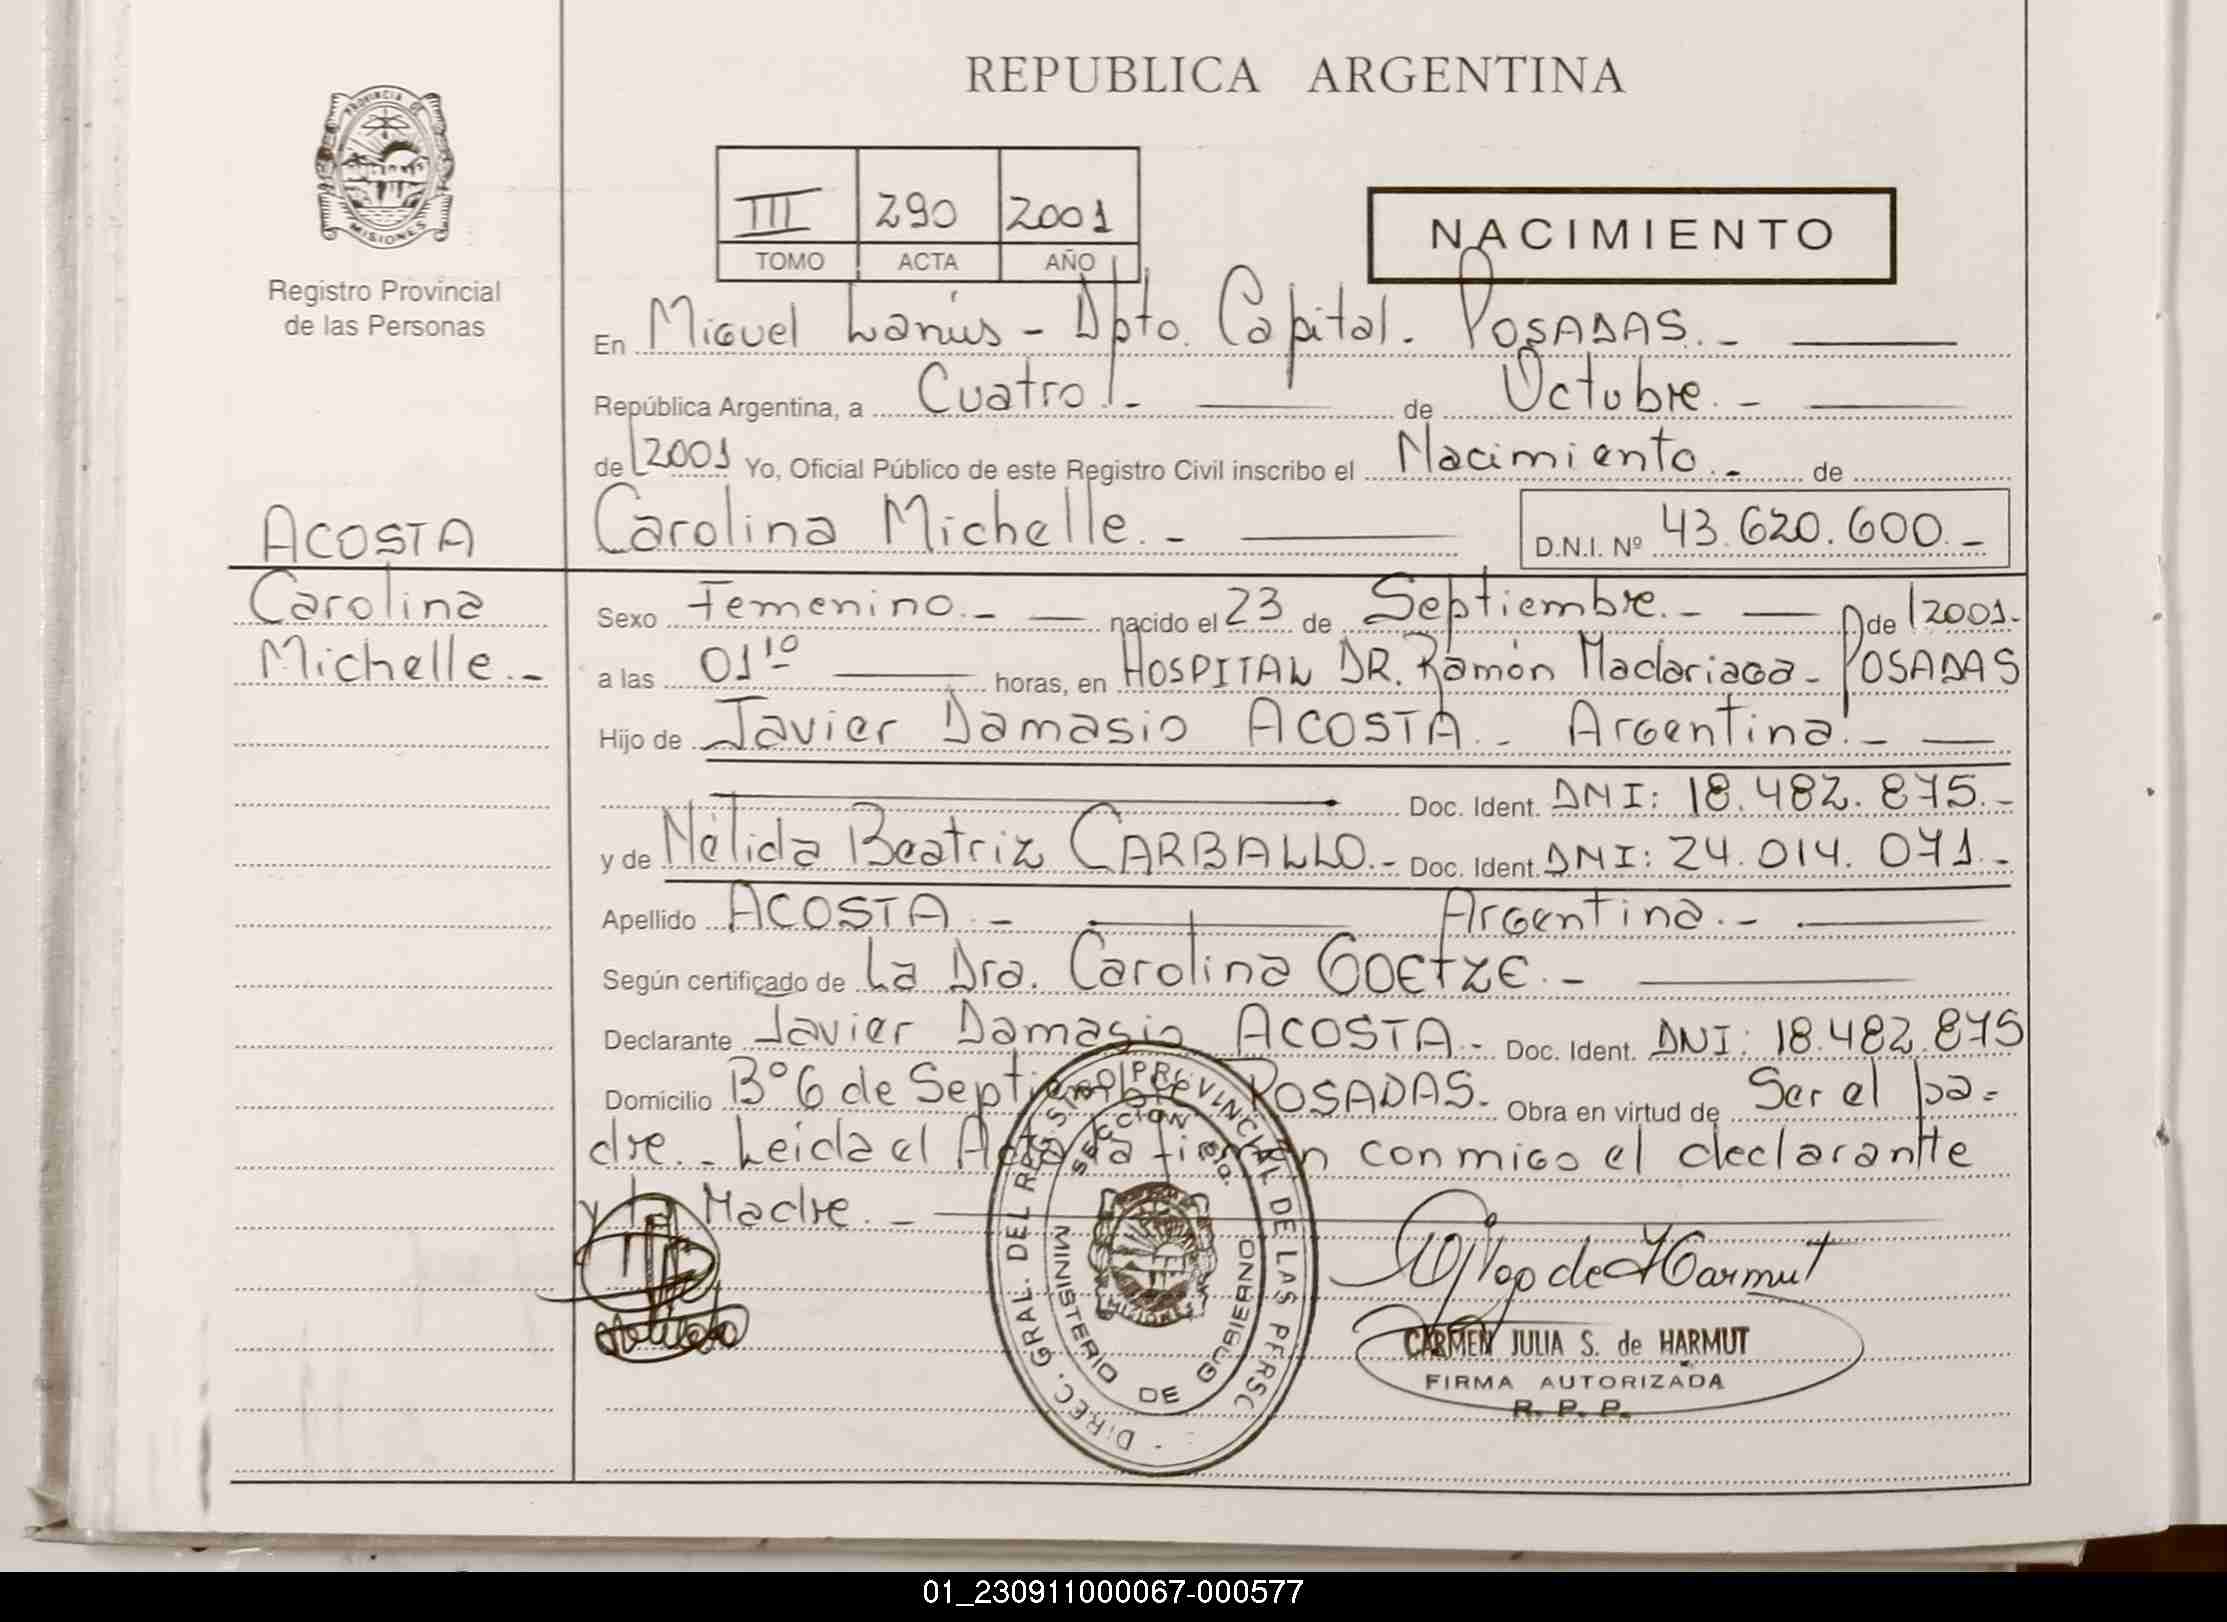 REPUBLICA ARGENTINA
PROVINCIA DE
MISIONES
Registro Provincial
de las Personas
III 290 2001
TOMO ACTA AÑO
NACIMIENTO
En Miguel Lanús - Dpto. Capital. POSADAS. -
República Argentina, a Cuatro. - de Octubre. -
de 2001 Yo, Oficial Público de este Registro Civil inscribo el Nacimiento. - de
Carolina Michelle. - D.N.I. Nº 43.620.600. -
ACOSTA
Carolina
Michelle. -
Sexo Femenino. - nacido el 23 de Septiembre. - de 2001.
a las 01¹⁰ horas, en HOSPITAL DR. Ramón Madariaga - POSADAS
Hijo de Javier Damasio ACOSTA. - Argentina. -
Doc. Ident. DNI: 18.482.875. -
y de Nélida Beatriz CARBALLO. - Doc. Ident. DNI: 24.014.071. -
Apellido ACOSTA. - Argentina. -
Según certificado de La Dra. Carolina GOETZE. -
Declarante Javier Damasio ACOSTA. - Doc. Ident. DNI: 18.482.875
Domicilio Bº 6 de Septiembre POSADAS. - Obra en virtud de Ser el pa-
dre. - Leida el Acta la firman conmigo el declarante
y la Madre. -
DIREC. GRAL. DEL REGISTRO PROVINCIAL DE LAS PERS
SECCION
MINISTERIO DE GOBIERNO
MISIONES
de Harmut
CARMEN JULIA S. de HARMUT
FIRMA AUTORIZADA
R. P. P.
01_230911000067-000577